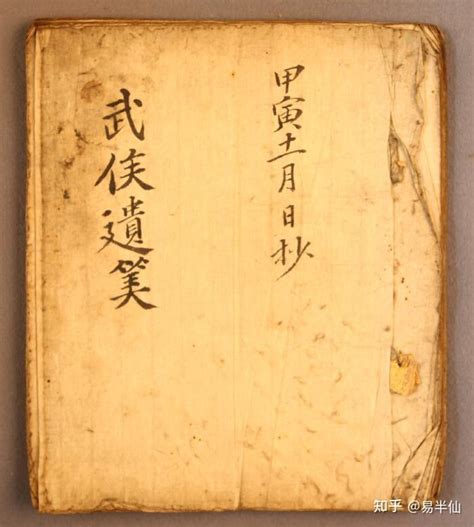 甲寅十二月日抄
武侯遺筴
知乎 @易半仙